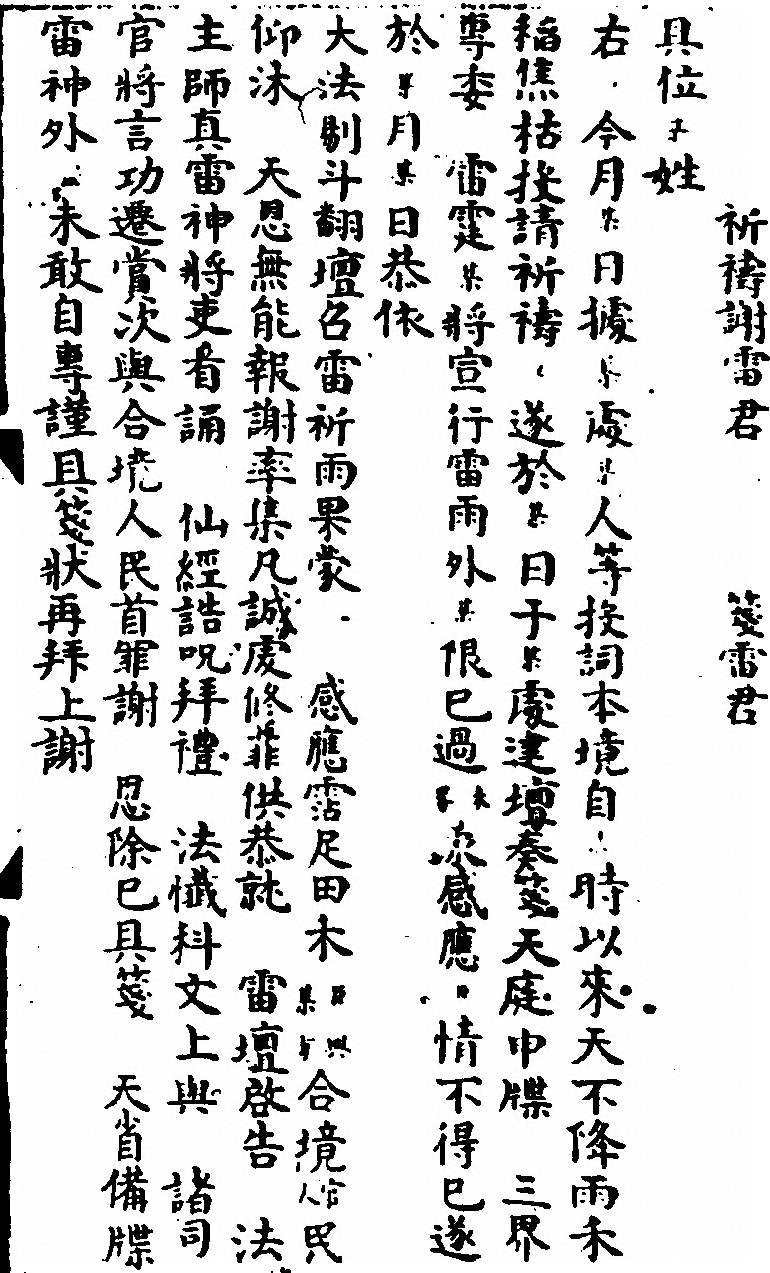 祈禱謝雷君　　箋雷君
具位某姓
右今月某日據某處某人等投詞本境自某時以來天不降雨禾
稻焦枯投請祈禱遂於某日于某處建壇奏箋天庭申牒　三界
專委　雷霆某將宣行雷雨外某限已過未感應某情不得已遂
於某月某日恭依
大法剔斗翻壇召雷祈雨果蒙　感應霑足田禾某與合境官人民
仰沐　天恩無能報謝率集凡誠處修菲供恭就　雷壇啟告　法
主師真雷神將吏看誦　仙經誥呪拜禮　法懺科文上與　諸司
官將言功遷賞次與合境人民首罪謝　忍除已具箋　天省備牒
雷神外未敢自專謹具箋狀再拜上謝